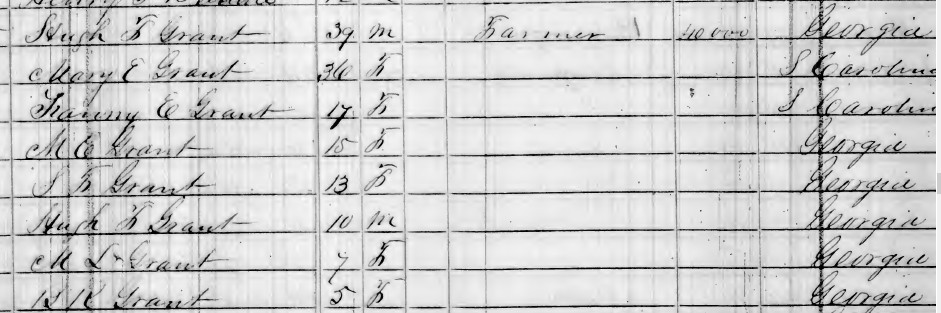 Hugh F Grant 39 m Farmer 40000 Georgia
Mary E Grant 36 F S Carolina
Fanny E Grant 17 F S Carolin
M E Grant 15 F Georgia
S F Grant 13 F Georgia
Hugh F Grant 10 m Georgia
M L Grant 7 F Georgia
Grant 5 F Georgia